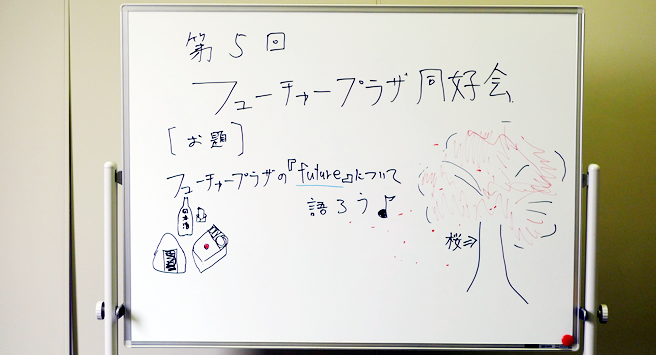 第5回
フューチャープラザ同好会
[お題]
フューチャープラザの『future』について
語ろう♪
日本酒
桜⇒